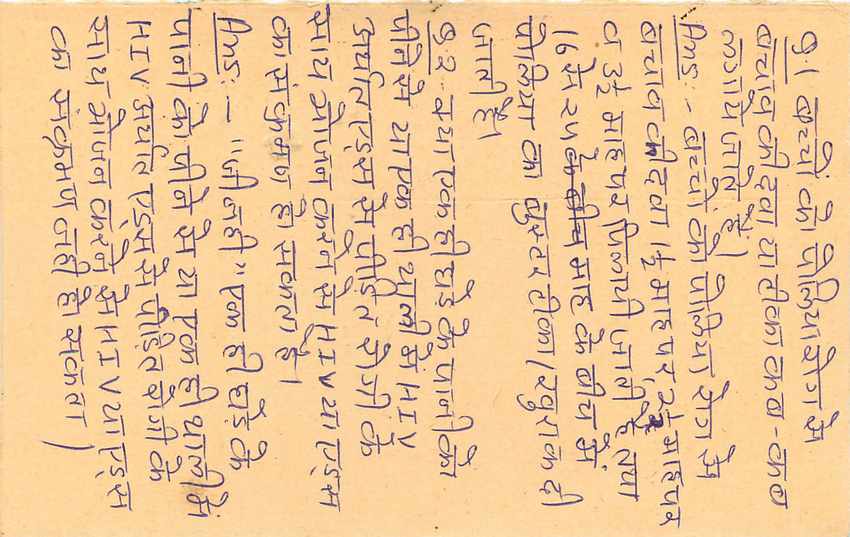 प्र.1 बच्चों को पोलियो रोग से
बचाव की दवा या टीका कब-कब
लगाये जाते हैं।
Ans:- बच्चों को पोलियो रोग से
बचाव की दवा 1½ माह पर, 2½ माह पर
व 3½ माह पर पिलायी जाती है तथा
16 से 24 के बीच माह के बीच में
पोलियो का बुस्टर टीका/खुराक दी
जाती है।
प्र.2- क्या एक ही घड़े के पानी को
पीने से या एक ही थाली में HIV
अर्थात एड्स से पीड़ित रोगी के
साथ भोजन करने से HIV या एड्स
का संक्रमण हो सकता है।
Ans:- "जी नहीं" एक ही घड़े के
पानी के पीने से या एक ही थाली में
HIV अर्थात एड्स से पीड़ित रोगी के
साथ भोजन करने से HIV या एड्स
का संक्रमण नहीं हो सकता।